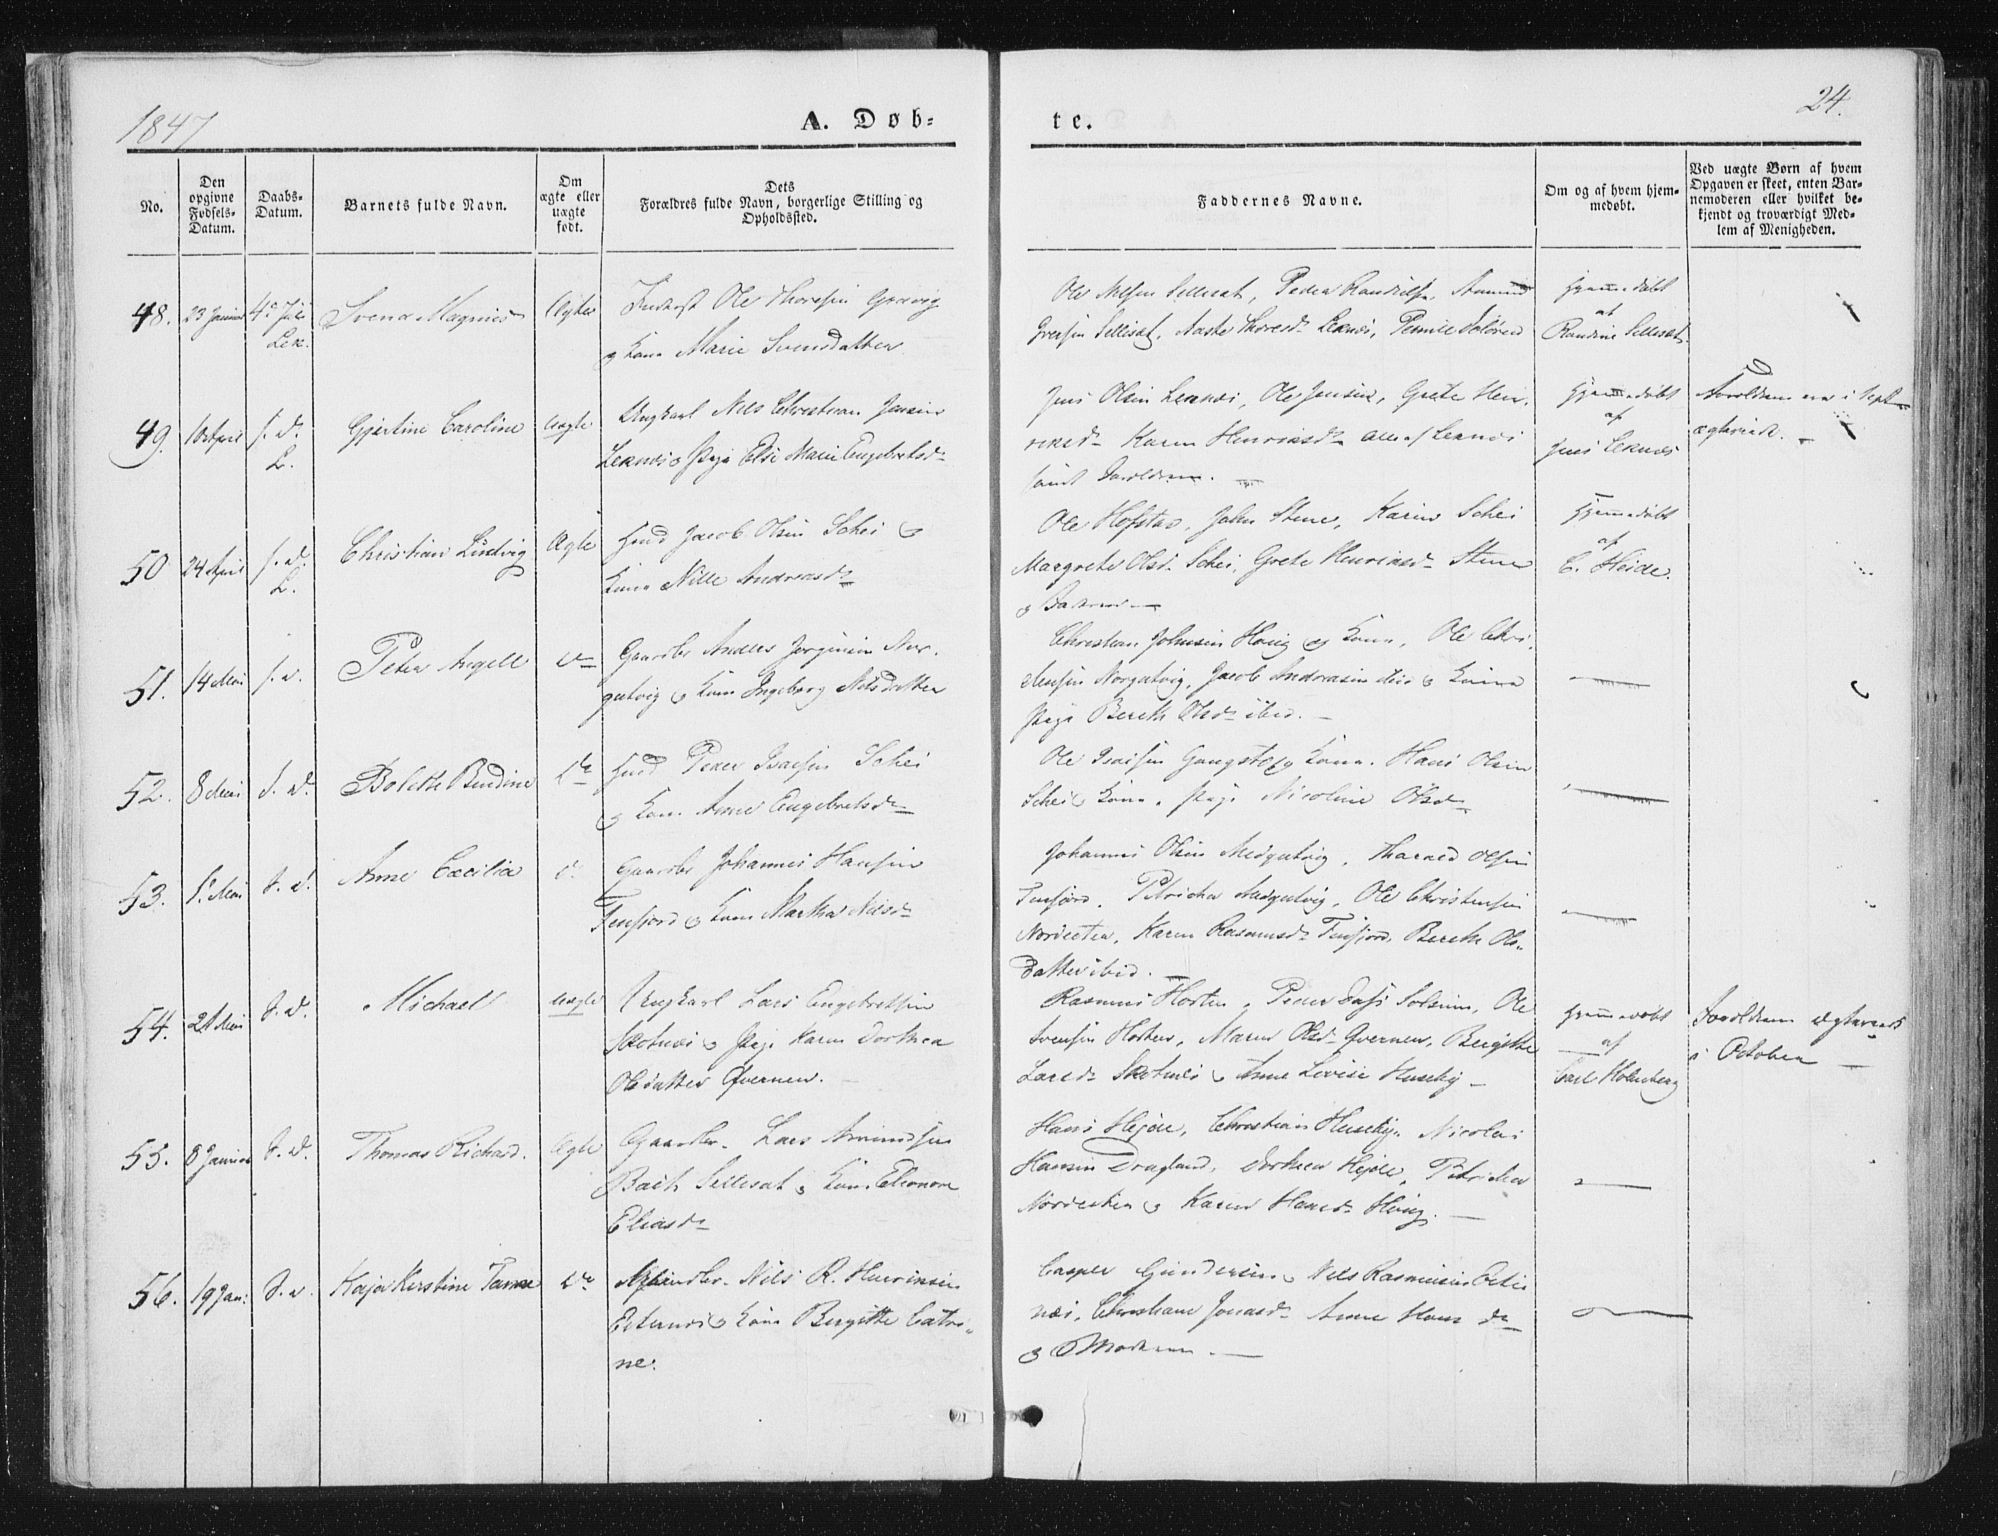 1847
A. Døb-
te.
24.
No.
Den opgivne Fødsels-Datum.
Daabs-Datum.
Barnets fulde Navn.
Om ægte eller uægte født.
Dets Forældres fulde Navn, borgerlige Stilling og Opholdssted.
Faddernes Navne.
Om og af hvem hjem-medøbt.
Ved uægte Børn af hvem Opgaven er skeet, enten Bar-nemoderen eller hvilket be-kjendt og troværdigt Med-lem af Menigheden.
48. 23 Januar 4de Juli Lek. Svend Magnus Ægte
Inderst Ole Thoresen
og Kone Marie Svendsdatter
Ole Nilsen Sellesat, Peder
Sellisat, Leknes,
Hjemmedøbt
af
Randine Sellesat
49. 10 April s. d. L. Gjertine Caroline Uægte
Ungkarl Nils Christian Jensen
Leknes, Pige Elsi Marie Engebretsdr
Jens Olsen Leknes, Ole Jensen, Grete Hen-
riksdr Karen Henriksdr alle af Leknes
samt Forældrene.
Hjemmedøbt
af
Jens Leknes
Forældrene ere i Septr
ægteviede.
50 24 April s. d. L. Christian Ludvig Ægte
Huusd Jacob Olsen Schei og
Kone Nille Andreasdr
Ole Hofstad, John Stene, Karen Schei
Margrete Olsd. Schei, Grete Henriksdr Stene
og
Hjemmedøbt
af
C. Heide.
51. 14 Mai s. d. Peter Angell do
Gaardbr Anders Jørgensen Nor-
gutvig og Kone Ingeborg Nilsdatter
Christian Johnsen Høvig og Kone, Ole Chri-
stensen Norgutvig, Jacob Andreasen og Kone
Pige Bereth Olsdr ibid.
52. 8 Mai s. d. Bolette Bendine do
Huusd Peder Isacsen Schei
og Kone Anne Engebretsdr
Ole Isacsen Gangstø og Kone. Hans Olsen
Schei og Kone. Pige Nicoline Olsdr
53. 1. Mai s. d. Anne Cæcilia do
Gaardbr Johannes Hansen
Finfjord og Kone Martha Nilsdr
Johannes Olsen Medgutvig, Olsen
Finfjord. Petricka Medgutvig, Ole Christensen
Nordester, Karen Rasmusdr Finfjord, Bereth Ols-
datter ibid.
54. 21 Mai s. d. Michael Uægte
Ungkarl Lars Engebretsen
Skotnes og Pige Karen Dorthea
Olsdatter Qvernen.
Rasmus Horten, Peder Ole
Svensen Horten, Maren Olsdr Qvernen, Birgitte
Larsdr Skotnes og Anne Lovise Huseby
Hjemmedøbt
af
Carl Holmberg
Forældrene ægteviede
i October
55. 8 Januar s. d. Thomas Richard. Ægte
Gaardbr. Lars Amundsen
Bach Sellesat og Kone Eleonore
Eliasdr
Hans Hejde, Christian Huseby, Nicolai
Hansen Dragland, Dorthea Hejde, Petricka
Nordester og Karen Hansdr Høvig.
56. 19 Jan: s. d. Kaja Kerstine Tanne do
Nils R. Henriksen
og Kone Birgitte Catri-
ne.
Casper Gundersen, Nils Rasmusen
nes, Christiane Jonasdr Anne Hansdr
og Moderen.